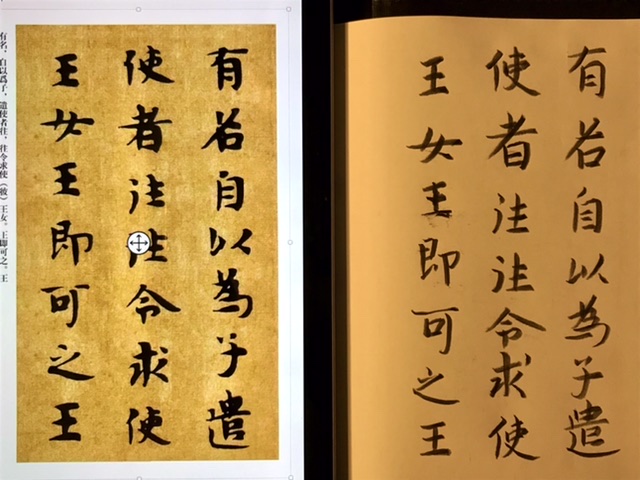 有名自以為子遣
使者往往令求使
王女王即可之王
有名，自以爲子，遣使者往，往令求使（彼）王女。王即可之。王
有名自以為子遣
使者往往令求使
王女王即可之王